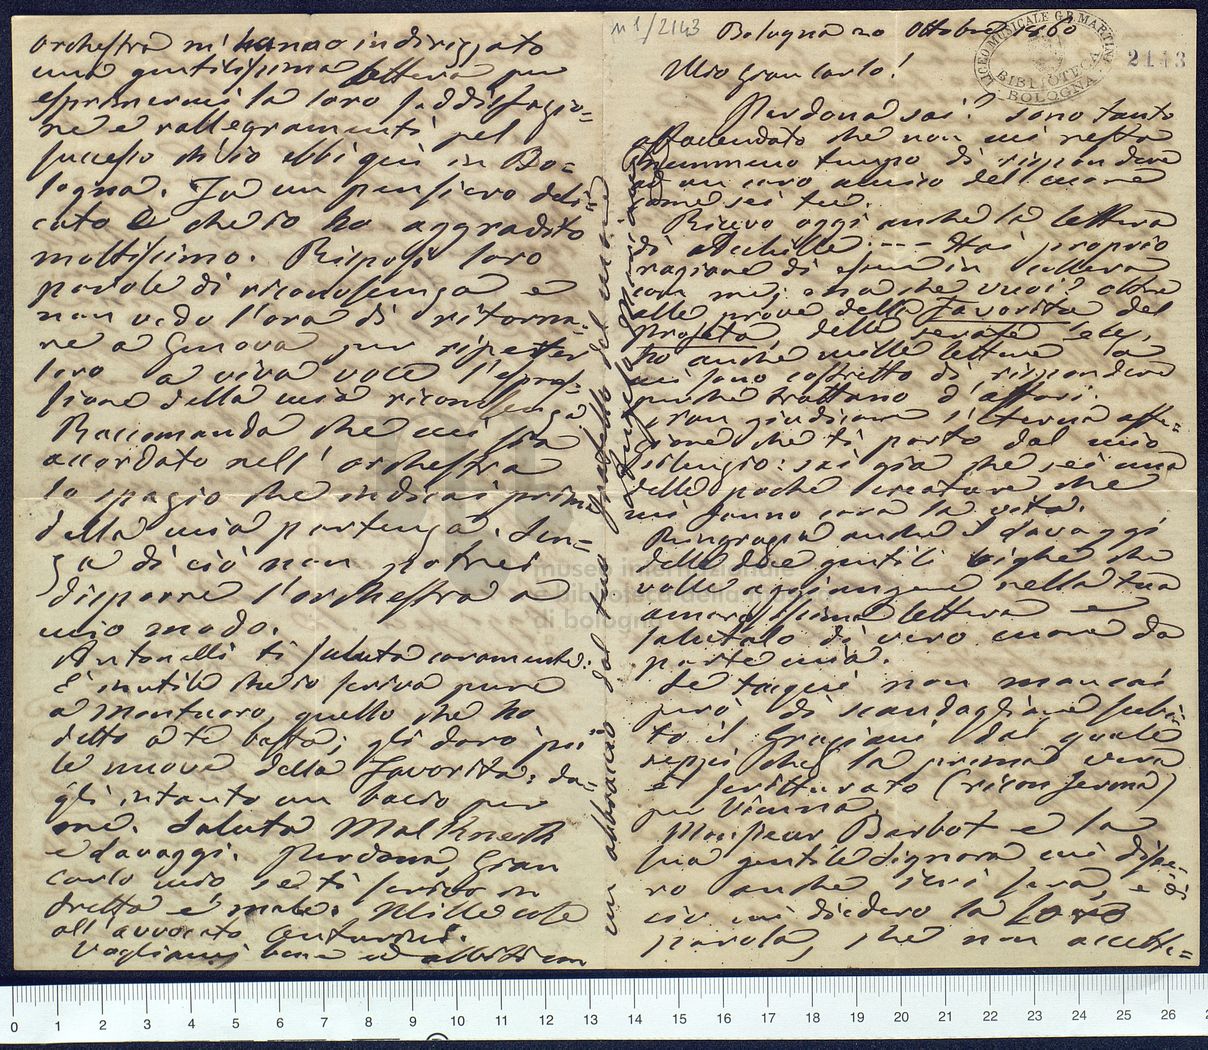 n 1/2143
Bologna 20 Ottobre 1860
LICEO MUSICALE G.B. MARTINI
BIBLIOTECA
BOLOGNA
2143
Mio Gian Carlo!
Perdona sai? sono tanto
affacendato che non mi resta
nemmeno tempo di rispondere
ad un caro amico del cuore
come sei tu.
Ricevo oggi anche la lettera
di Achille --- Hai proprio
ragione di essere in collera
con me; ma che vuoi? oltre
alle prove della Favorita del
Profeta, delle serate ecc,
ho anche mille lettere a
cui sono costretto di rispondere
perché trattano d'affari.
Non giudicare l'eterna affe=
zione che ti porto dal mio
silenzio: sai già che sei una
delle poche creature che
mi fanno cara la vita.
Ringrazia anche il davaggi
delle due gentili righe che
volle aggiungere nella tua
amorosissima lettera e
salutalo di vero cuore da
parte mia.
Se tacqui non mancai
però di scandagliare subi=
to il Graziani dal quale
seppi che la prima vera
è scritturato (riconferma)
per Vienna
Monsieur Barbot e la
sua gentile Signora mi disse=
ro anche ieri sera, e di
ciò mi diedero la loro
parola, che non accette=
orchestra m'hanno indirizzato
una gentilissima lettera per
esprimermi la loro soddisfazio=
ne e rallegramenti pel
successo ch'io ebbi qui in Bo=
logna. Fu un pensiero deli=
cato e che io ho aggradito
moltissimo. Risposi loro
parole di riconoscenza e
non vedo l'ora di ritorna=
re a Genova per ripeter
loro a viva voce l'espres=
sione della mia riconoscenza
Raccomanda che mi sia
accordato nell'orchestra
lo spazio che indicai prima
della mia partenza. Sen=
za di ciò non potrei
disporre l'orchestra a
mio modo.
Antonelli ti saluta caramente.
È inutile ch'io scriva pure
a Montuoro, quello che ho
detto a te basta; gli darò poi
le nuove della Favorita: da=
gli intanto un bacio per
me. Saluta
e davaggi. Perdona, Gian
Carlo mio se ti scrivo in
fretta e male. Mille cose
all'avvocato
Vogliami bene ed abbiti con
un abbraccio dal tuo fratello del cuore
Angelo Mariani
museo internazionale
e biblioteca della musica
di bologna
0 1 2 3 4 5 6 7 8 9 10 11 12 13 14 15 16 17 18 19 20 21 22 23 24 25 26